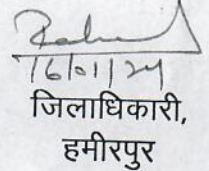 16/01/24
जिलाधिकारी,
हमीरपुर